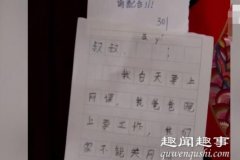 请配合!!!
301
叔叔：
我白天要上
网课，我爸爸晚
上要工作，我们
家不能关网
趣闻趣事
quwengushi.com